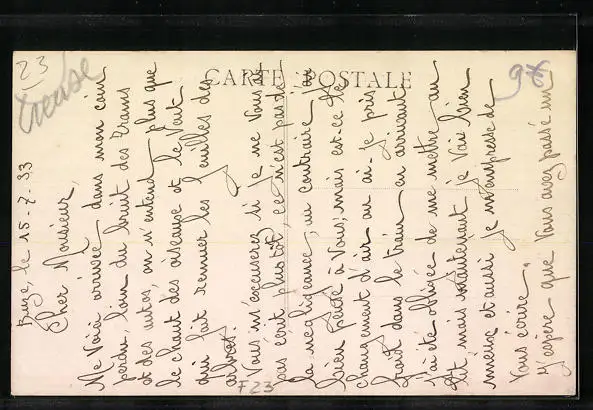 CARTE POSTALE
23
Creuse
9€
Buze, le 15-7-33
Cher Monsieur,
Me Voici arrivée dans mon coin
perdu, loin du bruit des trams
et des autos, on n'entend plus que
le chant des oiseaux et le Vent
qui fait remuer les feuilles des
arbres.
Vous m'excuserez si je ne Vous ai
pas écrit plus tôt, ce n'est pas de
la négligence, au contraire, j'ai
bien pensé à Vous; mais est-ce le
changement d'air ou ai-je pris
froid dans le train, en arrivant
j'ai été obligée de me mettre au
lit mais maintenant je Vais bien
mieux et aussi je m'empresse de
Vous écrire.
J'espère que Vous avez passé un
F23